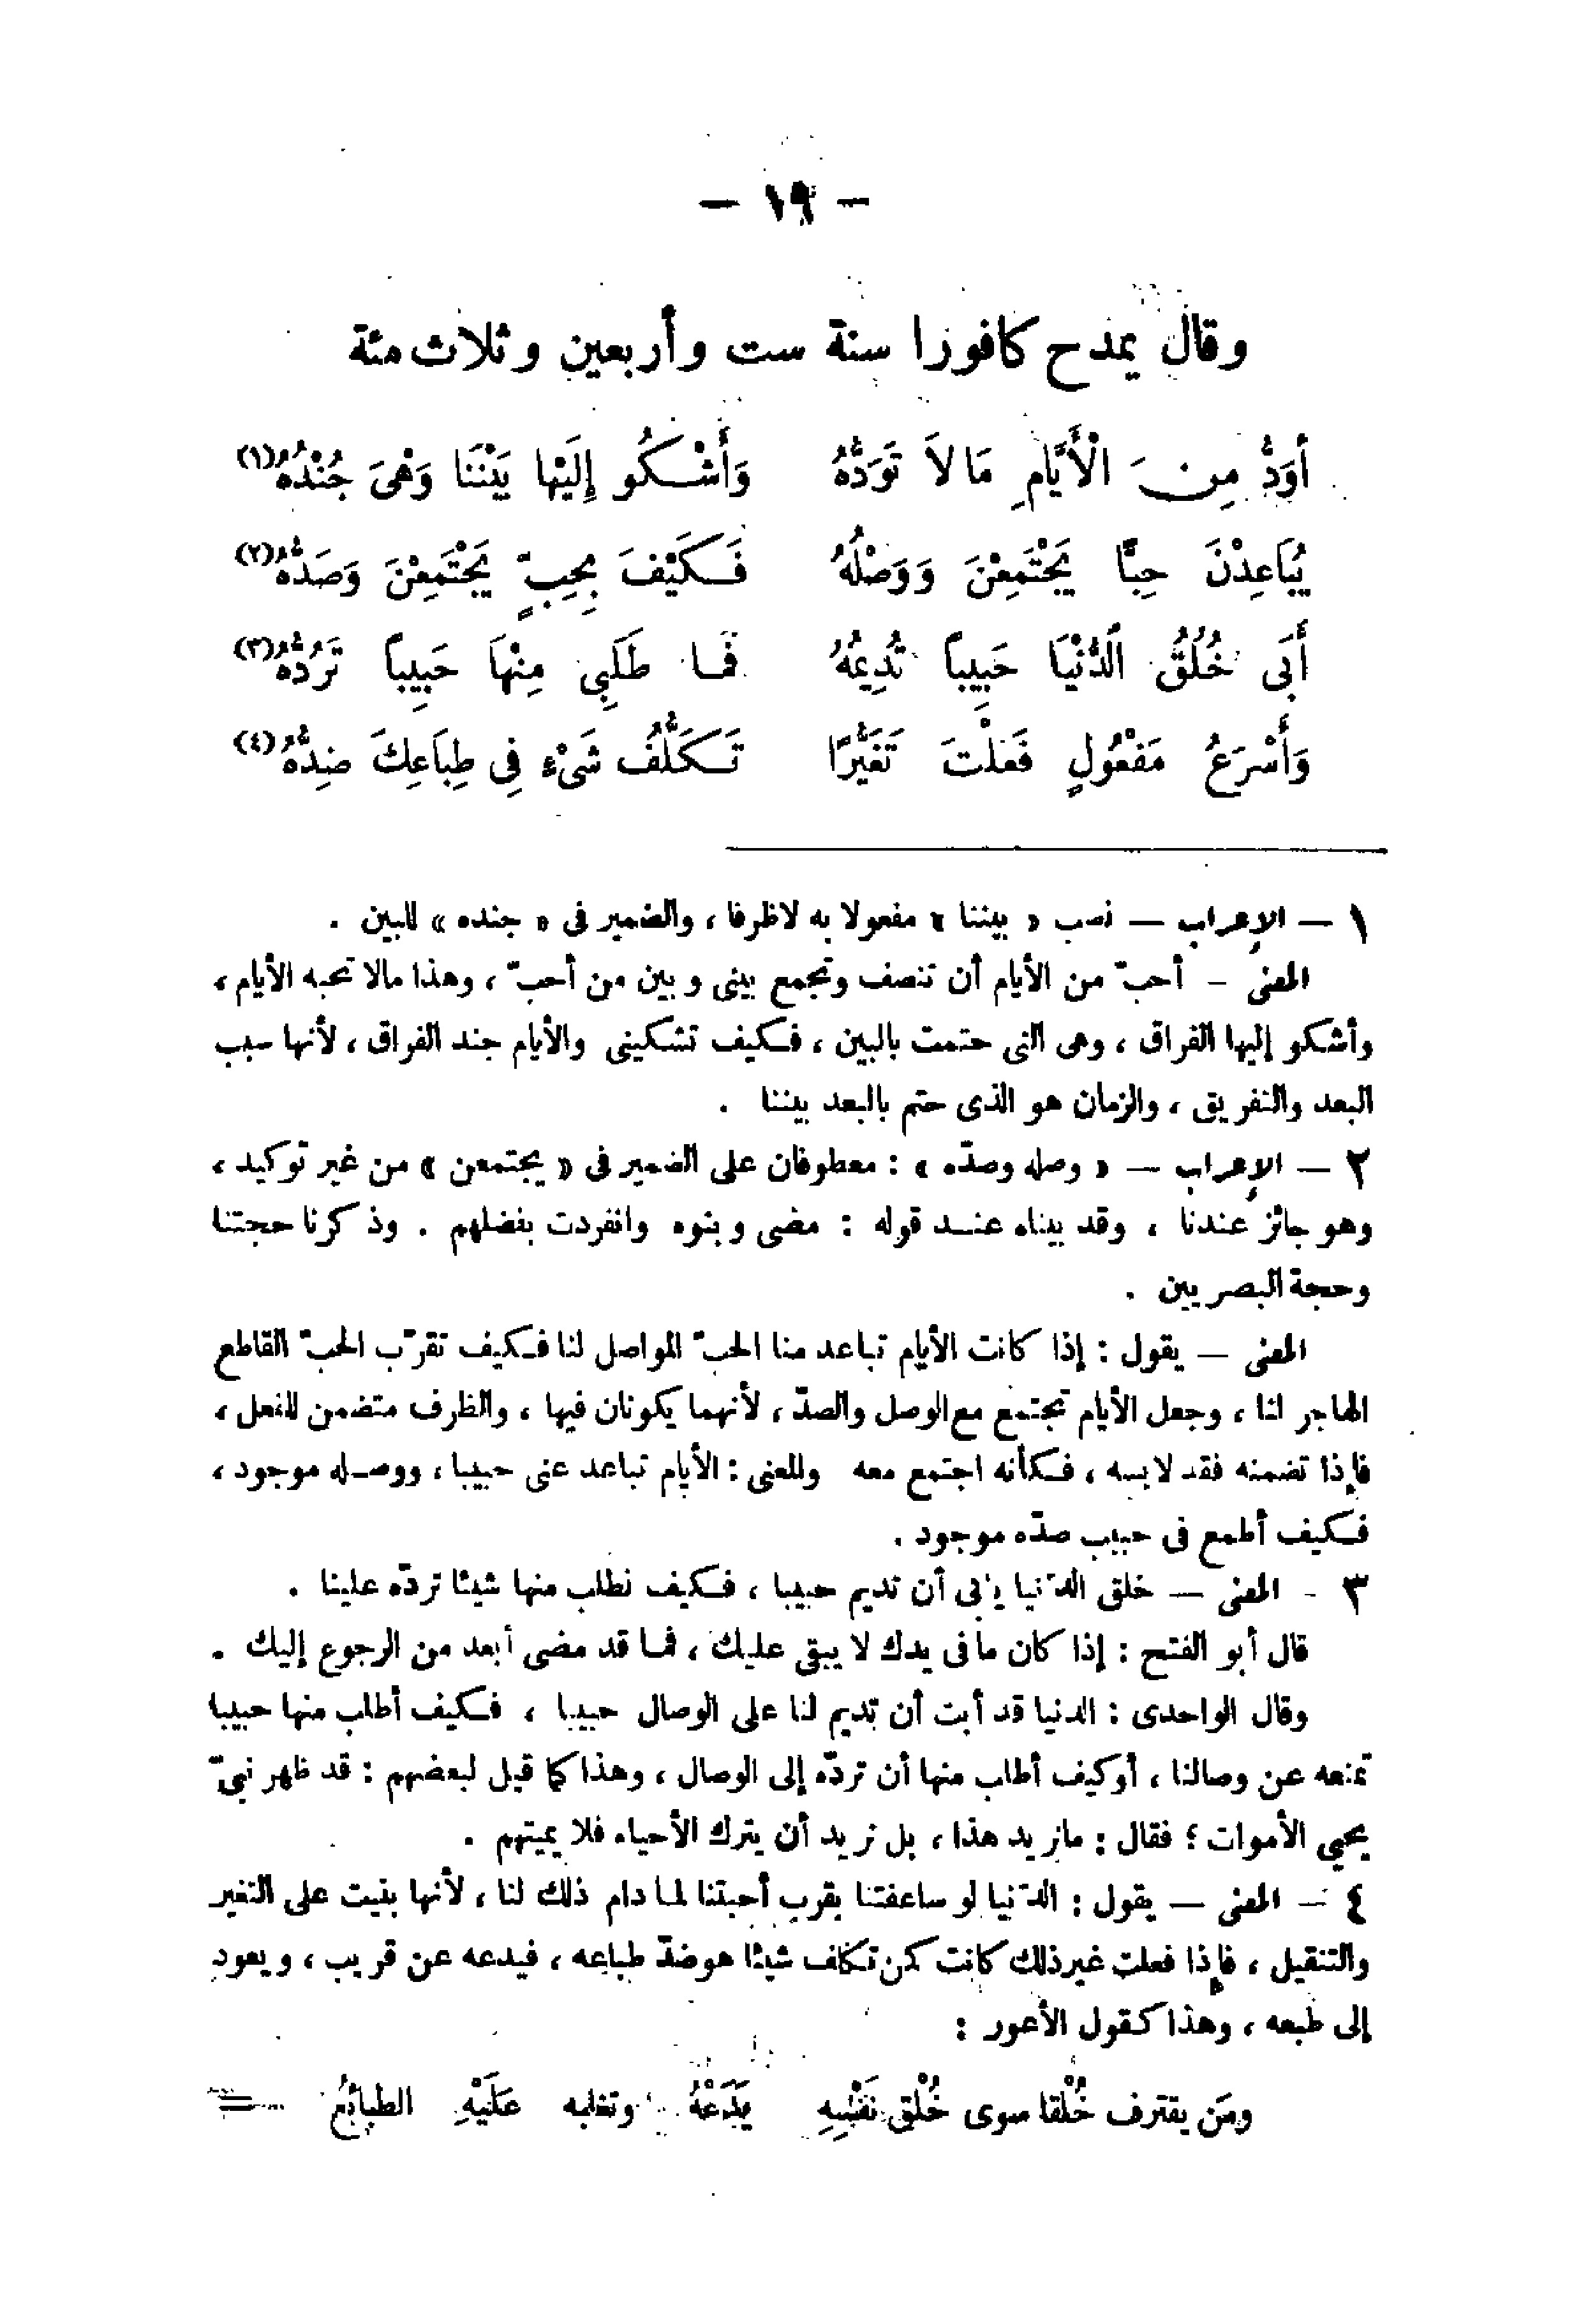 — ١٩ —
وقال يمدح كافورا سنة ست وأربعين وثلاث مئة
أَوَدُّ مِنَ الْأَيَّامِ مَا لاَ تَوَدُّهُ وَأَشْكُو إِلَيْهَا بَيْنَنَا وَهْىَ جُنْدُهُ (١)
يُبَاعِدْنَ حِبًّا يَجْتَمِعْنَ وَوَصْلُهُ فَكَيْفَ بِحِبٍّ يَجْتَمِعْنَ وَصَدُّهُ (٢)
أَبَى خُلُقُ الدُّنْيَا حَبِيباً تُدِيمُهُ فَمَا طَلَبِى مِنْهَا حَبِيباً تَرُدُّهُ (٣)
وَأَسْرَعُ مَفْعُولٍ فَعَلْتَ تَغَيُّرًا تَكَلُّفُ شَىْءٍ فِى طِبَاعِكَ ضِدُّهُ (٤)
١ — الإعراب — نصب « بيننا » مفعولا به لاظرفا ، والضمير فى « جنده » للبين .
المعنى — أحبّ من الأيام أن تنصف وتجمع بينى وبين من أحبّ ، وهذا مالا تحبه الأيام ،
وأشكو إليها الفراق ، وهى التى حتمت بالبين ، فكيف تشكينى والأيام جند الفراق ، لأنها سبب
البعد والتفريق ، والزمان هو الذى حتم بالبعد بيننا .
٢ — الإعراب — « وصله وصدّه » : معطوفان على الضمير فى « يجتمعن » من غير توكيد ،
وهو جائز عندنا ، وقد بيناه عند قوله : مضى وبنوه وانفردت بفضلهم . وذكرنا حجتنا
وحجة البصريين .
المعنى — يقول : إذا كانت الأيام تباعد منا الحبّ المواصل لنا فكيف تقرّب الحبّ القاطع
الهاجر لنا ، وجعل الأيام تجتمع مع الوصل والصدّ ، لأنهما يكونان فيها ، والظرف متضمن للفعل ،
فإذا تضمنه فقد لابسه ، فكأنه اجتمع معه وللعنى : الأيام تباعد عنى حبيبا ، ووصله موجود ،
فكيف أطمع فى حبيب صدّه موجود .
٣ - المعنى — خلق الدّنيا يأبى أن تديم حبيبا ، فكيف نطلب منها شيئا تردّه علينا .
قال أبو الفتح : إذا كان ما فى يدك لا يبقى عليك ، فما قد مضى أبعد من الرجوع إليك .
وقال الواحدى : الدنيا قد أبت أن تديم لنا على الوصال حبيبا ، فكيف أطلب منها حبيبا
تمنعه عن وصالنا ، أوكيف أطلب منها أن تردّه إلى الوصال ، وهذا كما قيل لبعضهم : قد ظهر نبىّ
يحيى الأموات ؟ فقال : مانريد هذا ، بل نريد أن يترك الأحياء فلا يميتهم .
٤ — المعنى — يقول : الدّنيا لو ساعفتنا بقرب أحبتنا لما دام ذلك لنا ، لأنها بنيت على التغير
والتنقيل ، فإذا فعلت غير ذلك كانت كمن تكلف شيئا هو ضدّ طباعه ، فيدعه عن قريب ، ويعود
إلى طبعه ، وهذا كقول الأعور :
ومَن يقترف خُلْقا سوى خُلْقِ نَفْسِهِ يَدَعْهُ وتغلبه عَلَيْهِ الطبائعُ =